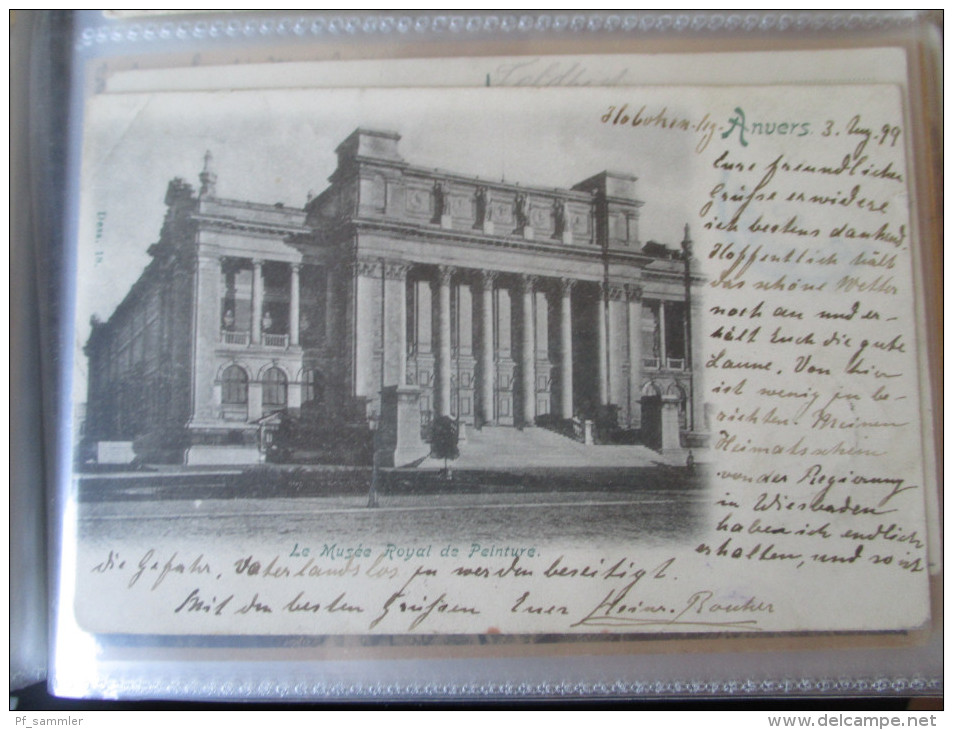 Hoboken Anvers. 3. Aug. 99
Eure freundlichen
Grüsse erwidere
ich bestens dankend.
Hoffentlich hält
das schöne Wetter
noch an und er-
hält Euch die gute
Laune. Von hier
ist wenig zu be-
richten. Meinen
Heimatschein
von der Regierung
in Wiesbaden
haben ich endlich
erhalten, und so ist
die Gefahr, Vaterlandslos zu werden beseitigt.
Mit den besten Grüssen Euer Heinr.
Le Musée Royal de Peinture.
Dess. 18.
Pf_sammler
www.delcampe.net